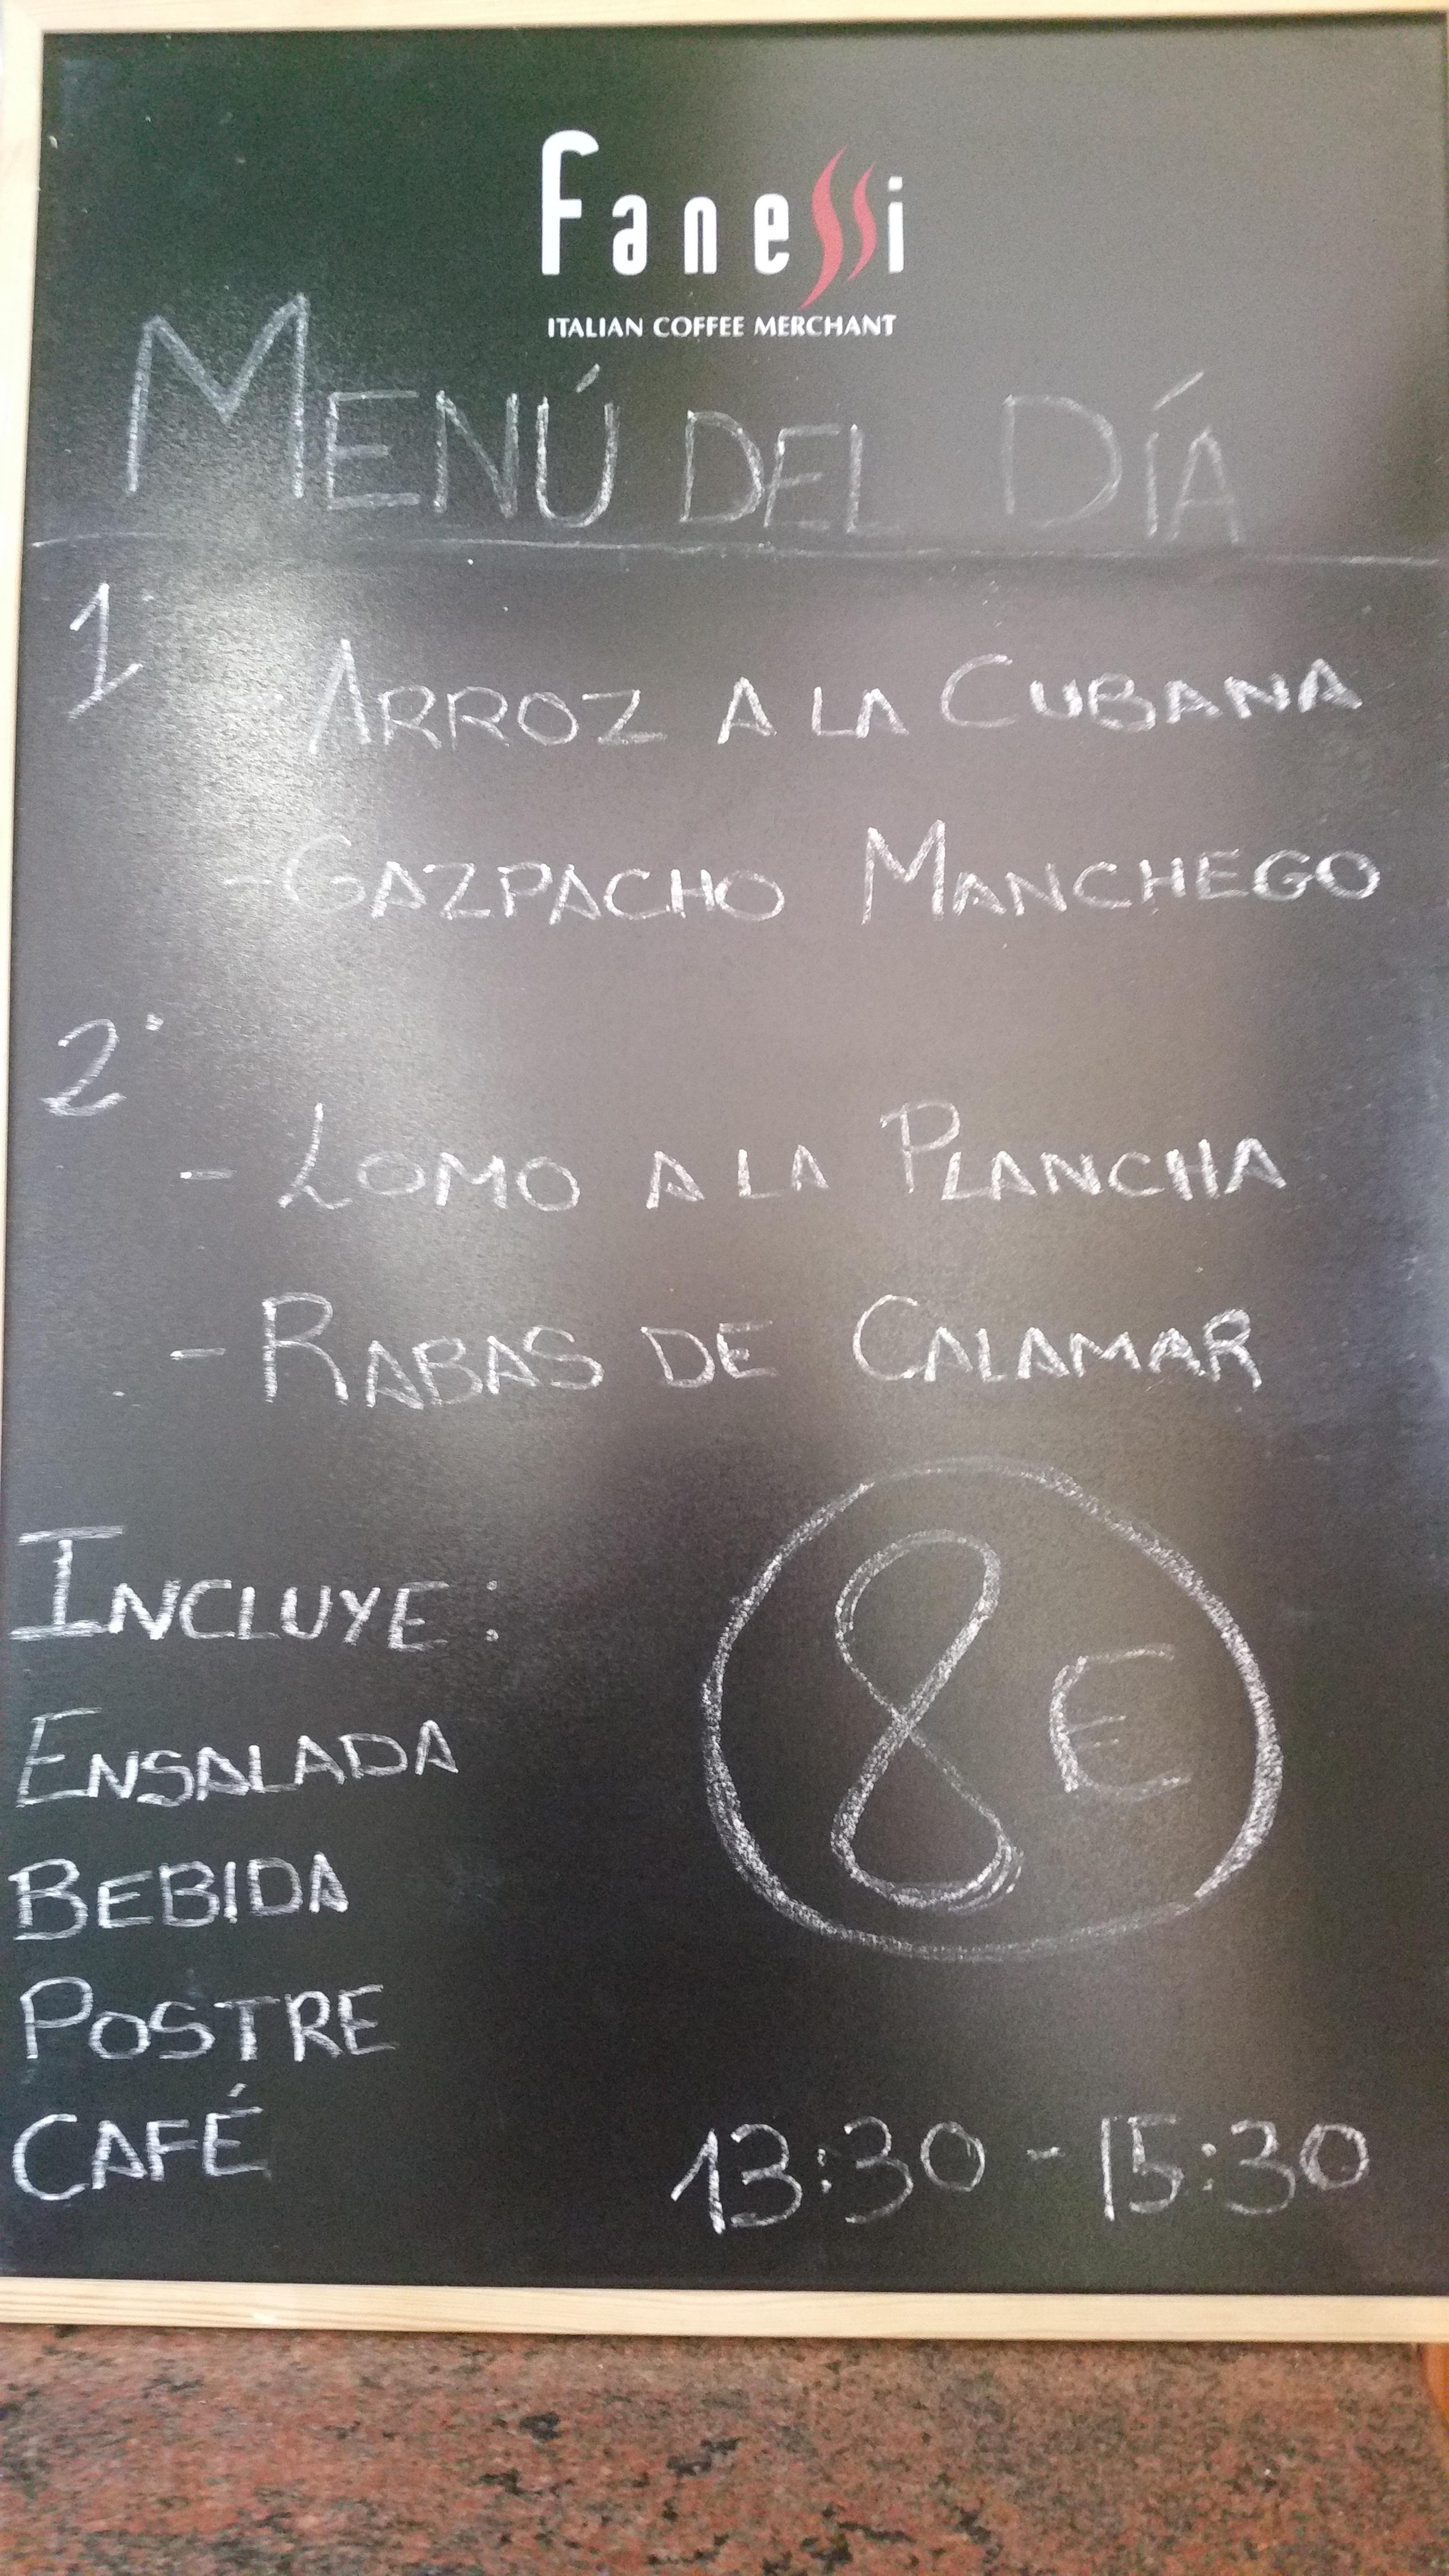 Fanessi
ITALIAN COFFEE MERCHANT
MENÚ DEL DÍA
1·
- ARROZ A LA CUBANA
- GAZPACHO MANCHEGO
2·
- LOMO A LA PLANCHA
- RABAS DE CALAMAR
INCLUYE:
8 E
ENSALADA
BEBIDA
POSTRE
CAFÉ
13:30 - 15:30